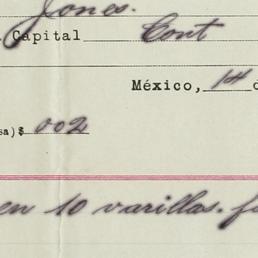 Jones.
Capital Cont
México, 14 d
sa) $ 002
en 10 varillas. f